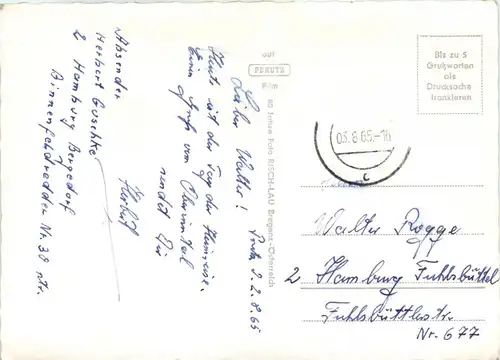 Lieber Walter!
Prutz, d. 2.8.65
Heute ist der Tag der Heimreise.
Einen Gruß vom
sendet Dir
Herbert
Absender
Herbert Guschke
2 Hamburg Bergedorf
Binnenfeldredder Nr. 38 ptr.
auf
PERUTZ
Film
80 Jahre Foto RISCH-LAU Bregenz-Österreich
Bis zu 5
Grußworten
als
Drucksache
frankieren
03.8.65.-16
c
Walter Rogge
2 Hamburg Fuhlsbüttel
Fuhlsbüttlerstr.
Nr. 677